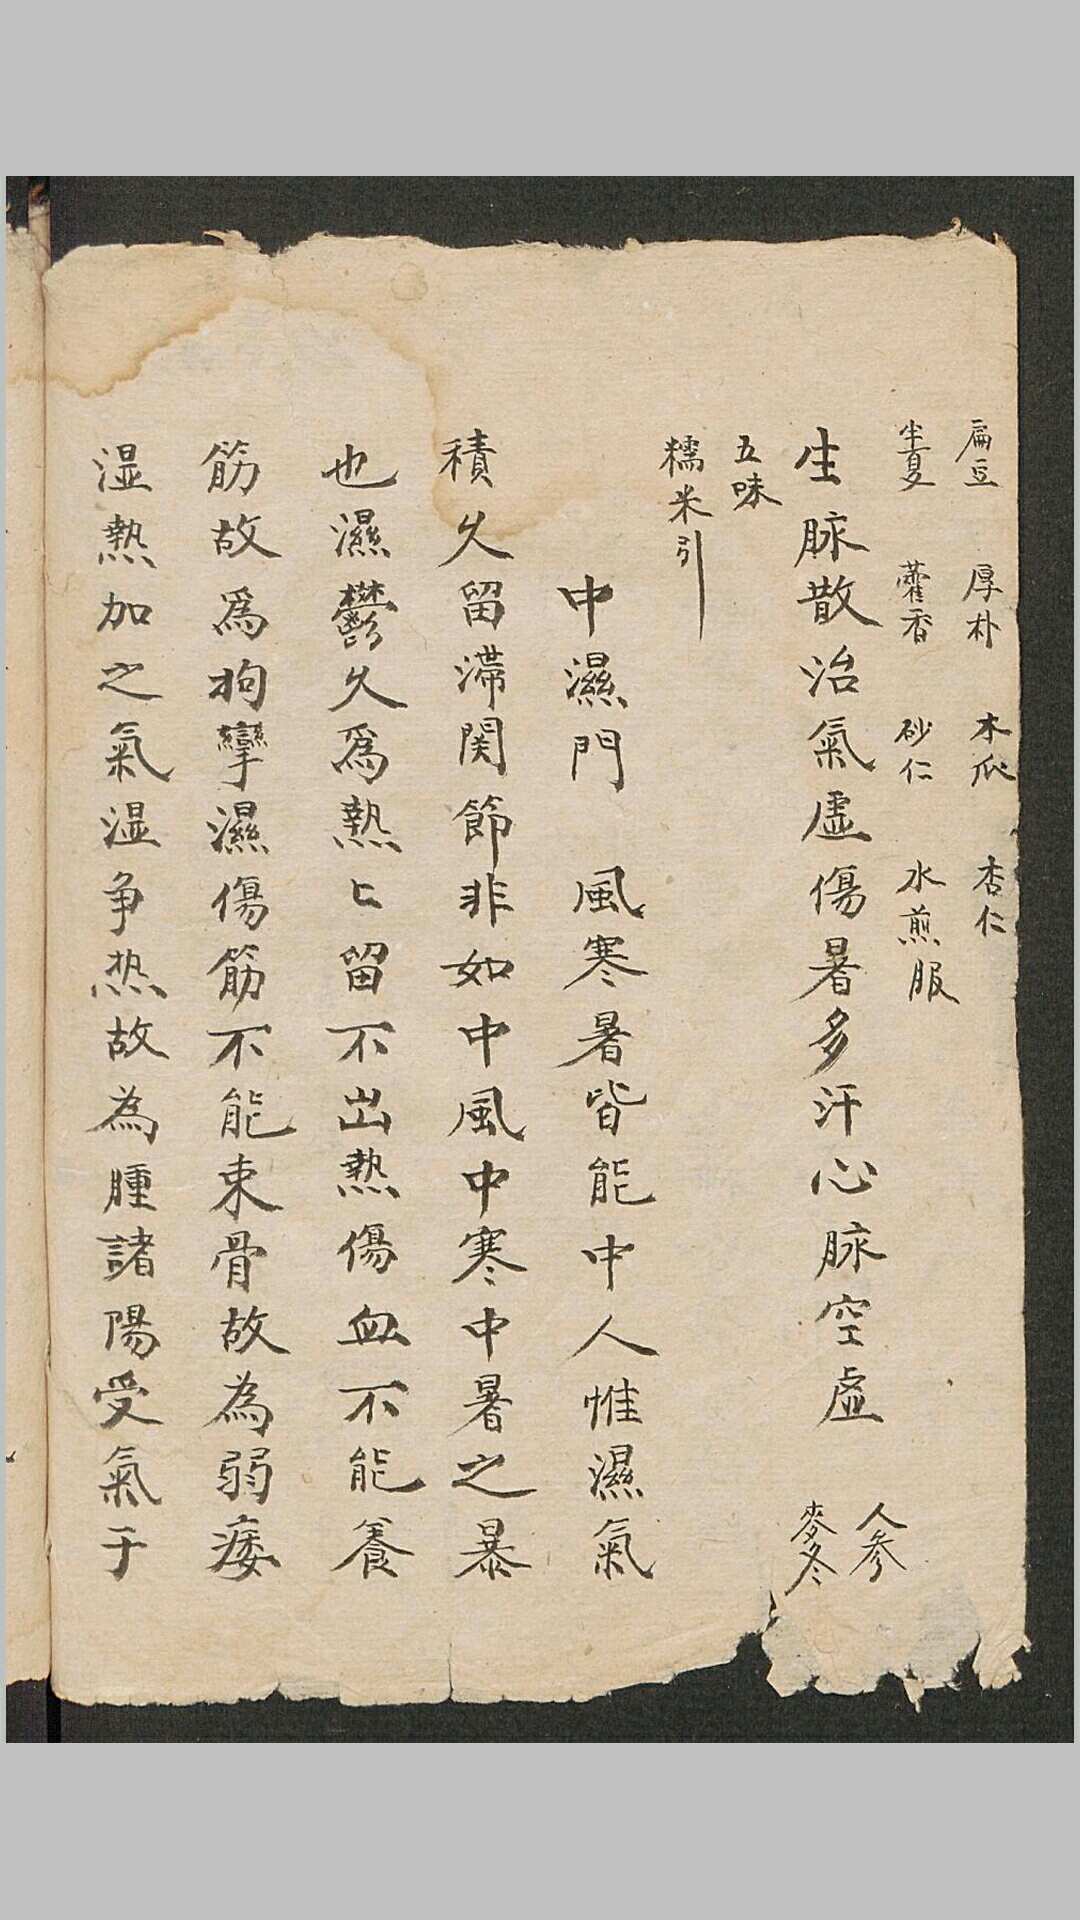 扁豆 厚朴 木瓜 杏仁
半夏 藿香 砂仁 水煎服
生脉散治氣虛傷暑多汗心脉空虛 人參
麥冬
五味
糯米引
中濕門 風寒暑皆能中人惟濕氣
積久留滯関節非如中風中寒中暑之暴
也濕鬱久爲熱〻留不出熱傷血不能養
筋故爲拘攣濕傷筋不能束骨故為弱痿
湿熱加之氣湿争热故為腫諸陽受氣于